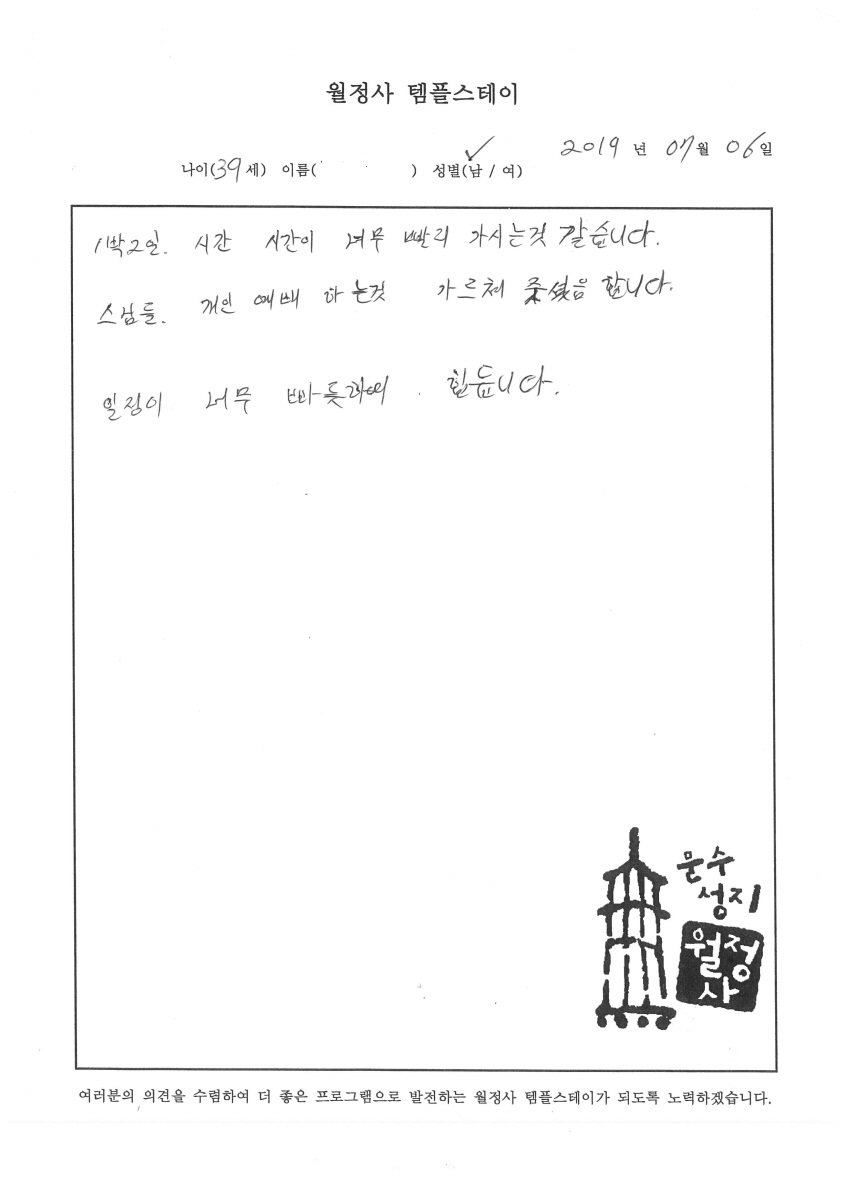 월정사 템플스테이
2019 년 07 월 06 일
나이(39 세) 이름( ) 성별(남 / 여)
1박2일. 시간 시간이 너무 빨리 가시는것 같습니다.
스님들. 개인 예배 하는것 가르쳐 줏셨음 합니다.
일정이 너무 힘듭니다.
문수
성지
월정
사
여러분의 의견을 수렴하여 더 좋은 프로그램으로 발전하는 월정사 템플스테이가 되도록 노력하겠습니다.